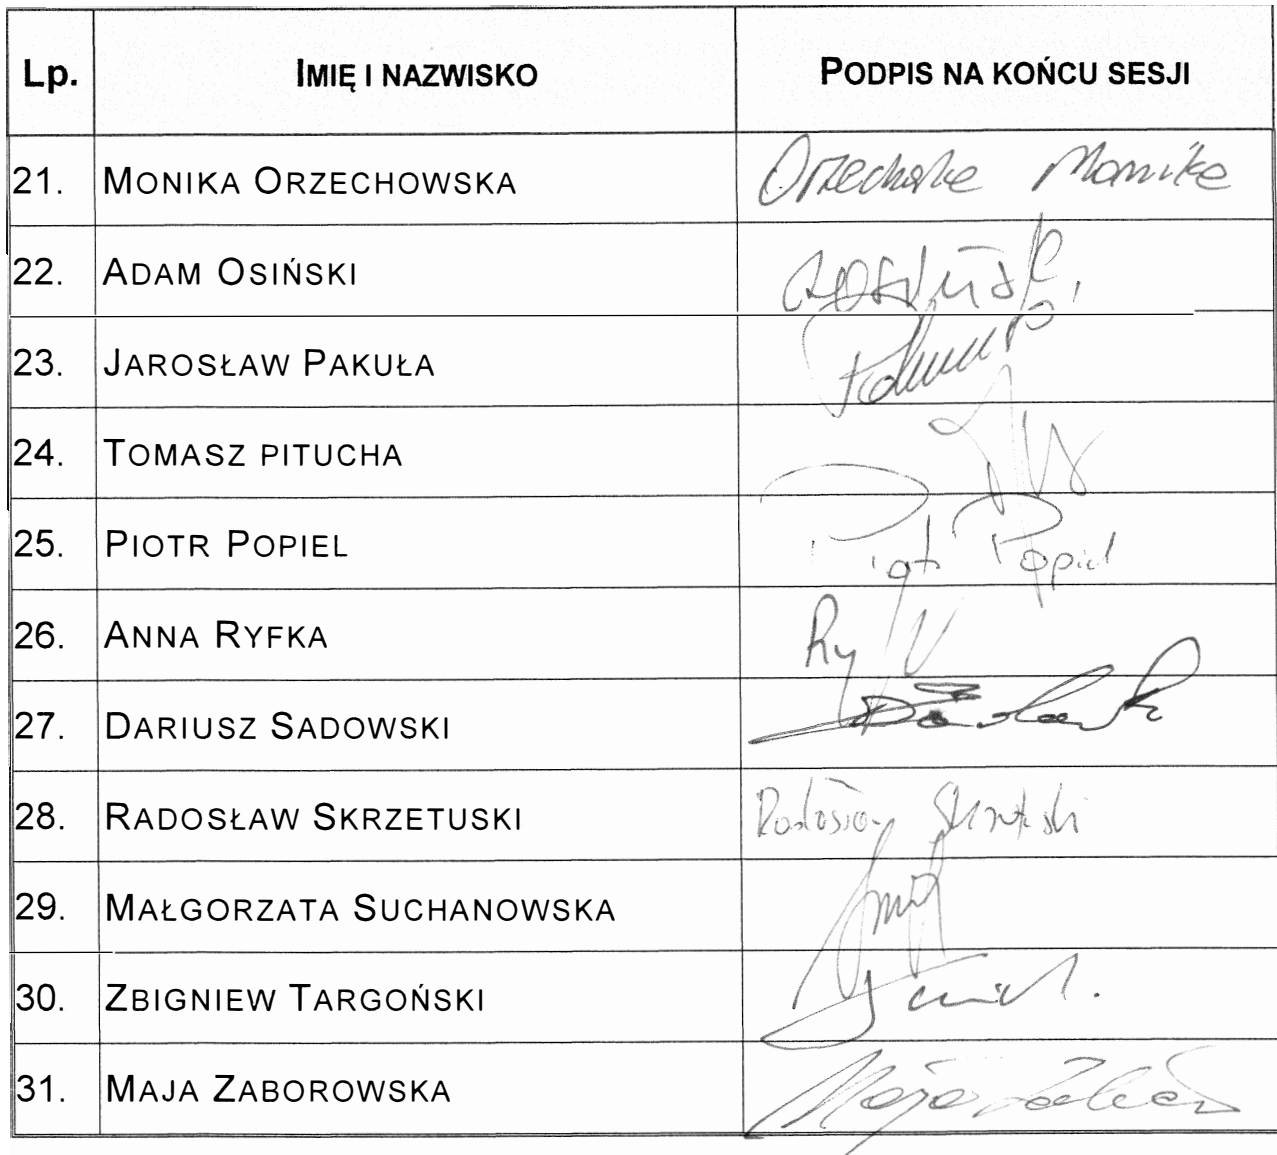 Lp. IMIĘ I NAZWISKO PODPIS NA KOŃCU SESJI
21. MONIKA ORZECHOWSKA Monika
22. ADAM OSIŃSKI
23. JAROSŁAW PAKUŁA
24. TOMASZ PITUCHA
25. PIOTR POPIEL Piotr Popiel
26. ANNA RYFKA
27. DARIUSZ SADOWSKI
28. RADOSŁAW SKRZETUSKI Radosław
29. MAŁGORZATA SUCHANOWSKA
30. ZBIGNIEW TARGOŃSKI
31. MAJA ZABOROWSKA Maja